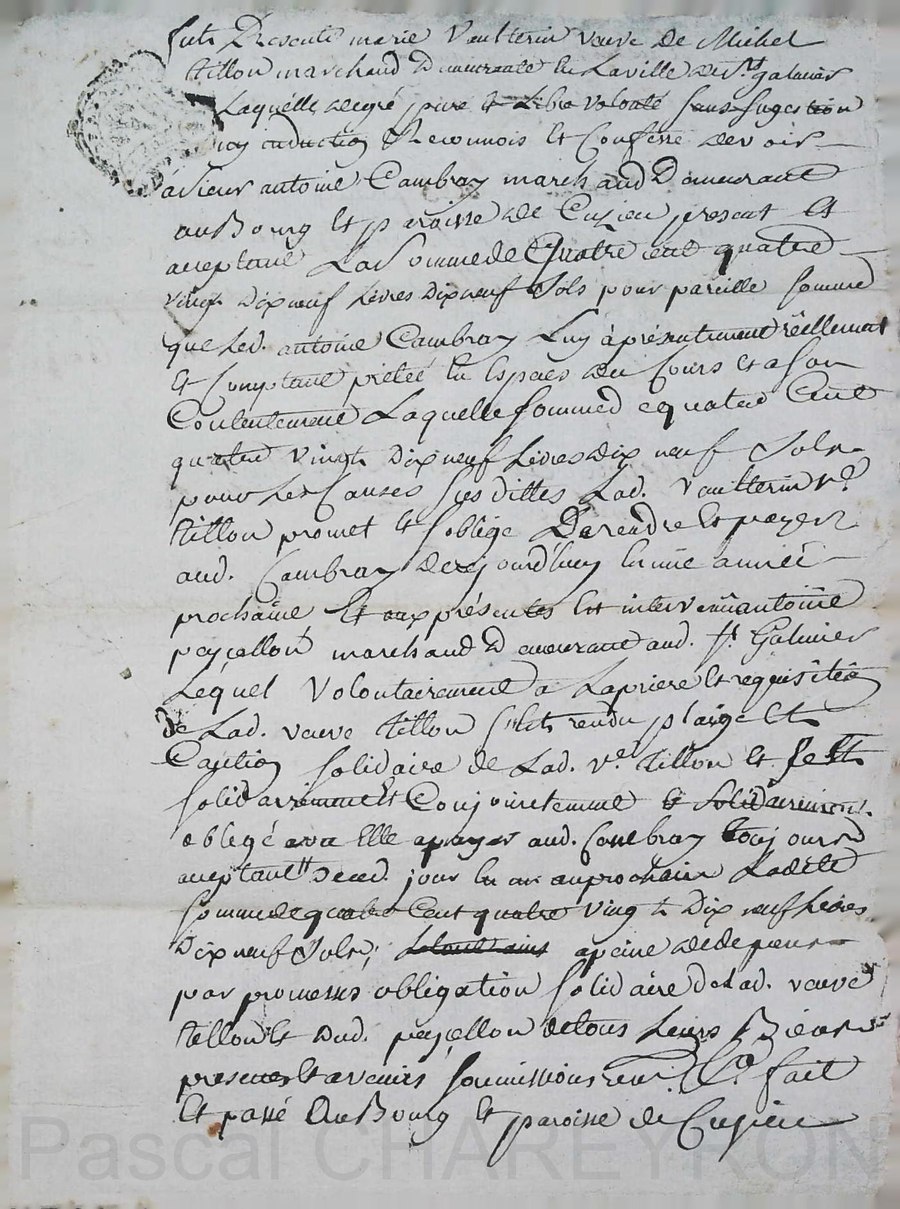 futh Presente marie Vaulterin veuve de Michel
tillon marchand demeurante en Laville de St galmier
Laquelle de gré pure et Libre volonté sans sugestion
ny induction Reconnois et Confesse devoir
a sieur antoine Cambray marchand Demeurant
au Bourg et paroisse de Cuzieu present et
aceptant La Somme de Quatre cent quatre
vingt Dix neuf Livres Dix neuf Sols pour pareille somme
que Led. antoine Cambray Luy à présentement réellement
et Comptant prêtée en Espèces du Cours et a son
Contentement Laquelle somme de quatre Cent
quatre vingt Dix neuf Livres dix neuf Sols
pour Les Causes susdittes Lad. Vaulterin ve
tillon promet et soblige De rendre et payer
aud. Cambray dejourd'huy en une année
prochaine Et aux présentes Est intervenu antoine
peycellon marchand demeurant aud. St Galmier
Lequel Volontairement a La priere et requisition
de Lad. veuve tillon s'est rendu plaige et
Caution solidaire de Lad. ve tillon et sest
solidairement Et Conjointement et solidairement
oblegé avec Elle a payer aud. Cambray toujours
aceptant De ced. jour en un an prochain Ladite
somme de quatre Cent quatre vingt Dix neuf Livres
Dix neuf Sols, a peine de depens
par promesses obligation solidaire de Lad. veuve
tillon Et Dud. peycellon de tous Leurs Biens
presents et avenirs soumissions ren. Ca fait
Et passé Au Bourg et paroisse de Cuzieu
Pascal CHAREYRON